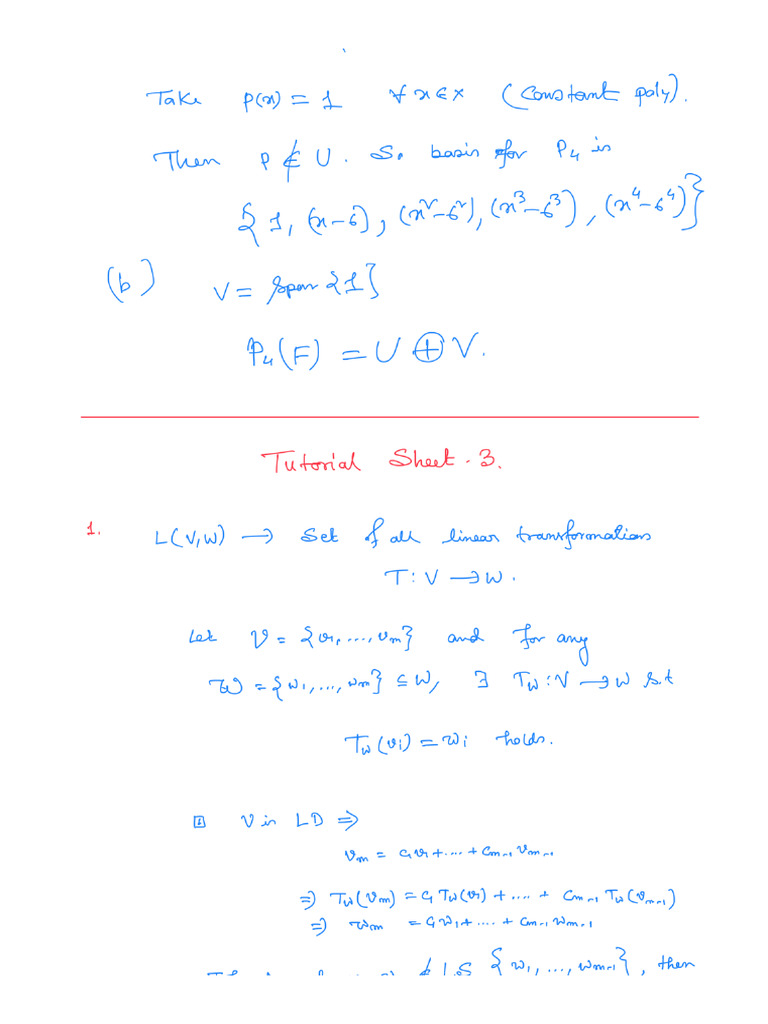 Take P(x) = 1 ∀ x ∈ x (Constant poly).
Then P ∉ U. So basis for P₄ is
{1, (x-6), (x²-6²), (x³-6³), (x⁴-6⁴)}
(b) V = Span {1}
P₄(F) = U ⊕ V.
Tutorial Sheet-3.
1. L(V,W) → Set of all linear transformations
T : V → W.
Let V = {v₁, ..., vₘ} and for any
W = {w₁, ..., wₘ} ⊆ W, ∃ T_w : V → W s.t
T_w(vᵢ) = wᵢ holds.
V is LD ⇒
vₘ = c₁v₁ + .... + cₘ₋₁ vₘ₋₁
⇒ T_w(vₘ) = c₁ T_w(v₁) + .... + cₘ₋₁ T_w(vₘ₋₁)
⇒ wₘ = c₁w₁ + .... + cₘ₋₁ wₘ₋₁
∉ L.S {w₁, ..., wₘ₋₁}, then